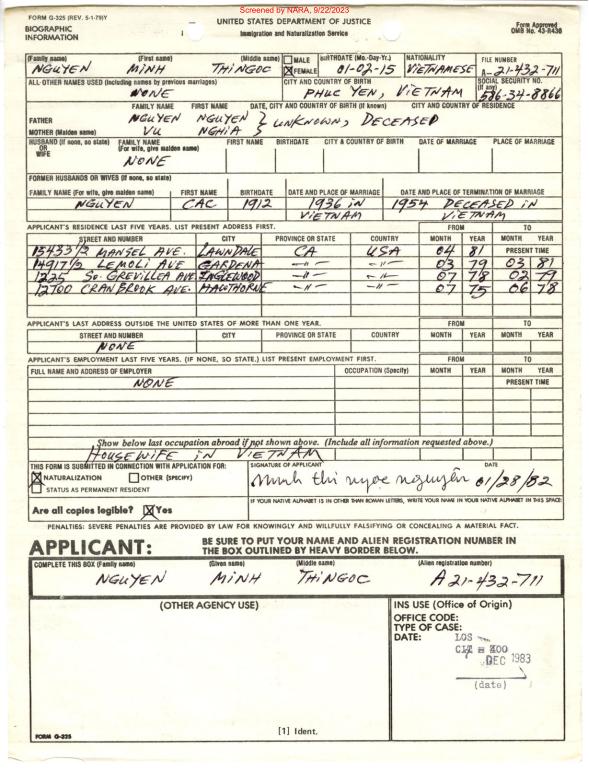 Screened by NARA, 9/22/2023
FORM G-325 (REV. 5-1-79)Y
UNITED STATES DEPARTMENT OF JUSTICE
Form Approved
BIOGRAPHIC
INFORMATION
Immigration and Naturalization Service
OMB No. 43-R436
(Family name) (First name) (Middle name) MALE BIRTHDATE (Mo.-Day-Yr.) NATIONALITY FILE NUMBER
NGUYEN MINH THINGOC FEMALE 01-02-15 VIETNAMESE A-21-432-711
ALL OTHER NAMES USED (Including names by previous marriages) CITY AND COUNTRY OF BIRTH SOCIAL SECURITY NO. (If any)
NONE PHUC YEN, VIETNAM 586-34-8866
FAMILY NAME FIRST NAME DATE, CITY AND COUNTRY OF BIRTH (If known) CITY AND COUNTRY OF RESIDENCE
FATHER NGUYEN NGUYEN } UNKNOWN, DECEASED
MOTHER (Maiden name) VU NGHIA
HUSBAND (If none, so state) OR WIFE FAMILY NAME (For wife, give maiden name) FIRST NAME BIRTHDATE CITY & COUNTRY OF BIRTH DATE OF MARRIAGE PLACE OF MARRIAGE
NONE
FORMER HUSBANDS OR WIVES (If none, so state)
FAMILY NAME (For wife, give maiden name) FIRST NAME BIRTHDATE DATE AND PLACE OF MARRIAGE DATE AND PLACE OF TERMINATION OF MARRIAGE
NGUYEN CAC 1912 1936 IN VIETNAM 1954 DECEASED IN VIETNAM
APPLICANT'S RESIDENCE LAST FIVE YEARS. LIST PRESENT ADDRESS FIRST. FROM TO
STREET AND NUMBER CITY PROVINCE OR STATE COUNTRY MONTH YEAR MONTH YEAR
15433 1/2 MANSEL AVE. LAWNDALE CA USA 04 81 PRESENT TIME
14917 1/2 LEMOLI AVE GARDENA -〃- -〃- 03 79 03 81
1225 SO. GREVILLEA AVE INGLEWOOD -〃- -〃- 07 78 02 79
12700 CRANBROOK AVE. HAWTHORNE -〃- -〃- 07 75 06 78
APPLICANT'S LAST ADDRESS OUTSIDE THE UNITED STATES OF MORE THAN ONE YEAR. FROM TO
STREET AND NUMBER CITY PROVINCE OR STATE COUNTRY MONTH YEAR MONTH YEAR
NONE
APPLICANT'S EMPLOYMENT LAST FIVE YEARS. (IF NONE, SO STATE.) LIST PRESENT EMPLOYMENT FIRST. FROM TO
FULL NAME AND ADDRESS OF EMPLOYER OCCUPATION (Specify) MONTH YEAR MONTH YEAR
NONE PRESENT TIME
Show below last occupation abroad if not shown above. (Include all information requested above.)
HOUSEWIFE IN VIETNAM
THIS FORM IS SUBMITTED IN CONNECTION WITH APPLICATION FOR: SIGNATURE OF APPLICANT DATE
NATURALIZATION OTHER (SPECIFY)
STATUS AS PERMANENT RESIDENT
Minh thi ngoc nguyễn 01/28/82
IF YOUR NATIVE ALPHABET IS IN OTHER THAN ROMAN LETTERS, WRITE YOUR NAME IN YOUR NATIVE ALPHABET IN THIS SPACE:
Are all copies legible? Yes
PENALTIES: SEVERE PENALTIES ARE PROVIDED BY LAW FOR KNOWINGLY AND WILLFULLY FALSIFYING OR CONCEALING A MATERIAL FACT.
APPLICANT: BE SURE TO PUT YOUR NAME AND ALIEN REGISTRATION NUMBER IN
THE BOX OUTLINED BY HEAVY BORDER BELOW.
COMPLETE THIS BOX (Family name) (Given name) (Middle name) (Alien registration number)
NGUYEN MINH THINGOC A 21-432-711
(OTHER AGENCY USE) INS USE (Office of Origin)
OFFICE CODE:
TYPE OF CASE:
DATE: LOS
DEC 1983
(date)
FORM G-325
[1] Ident.